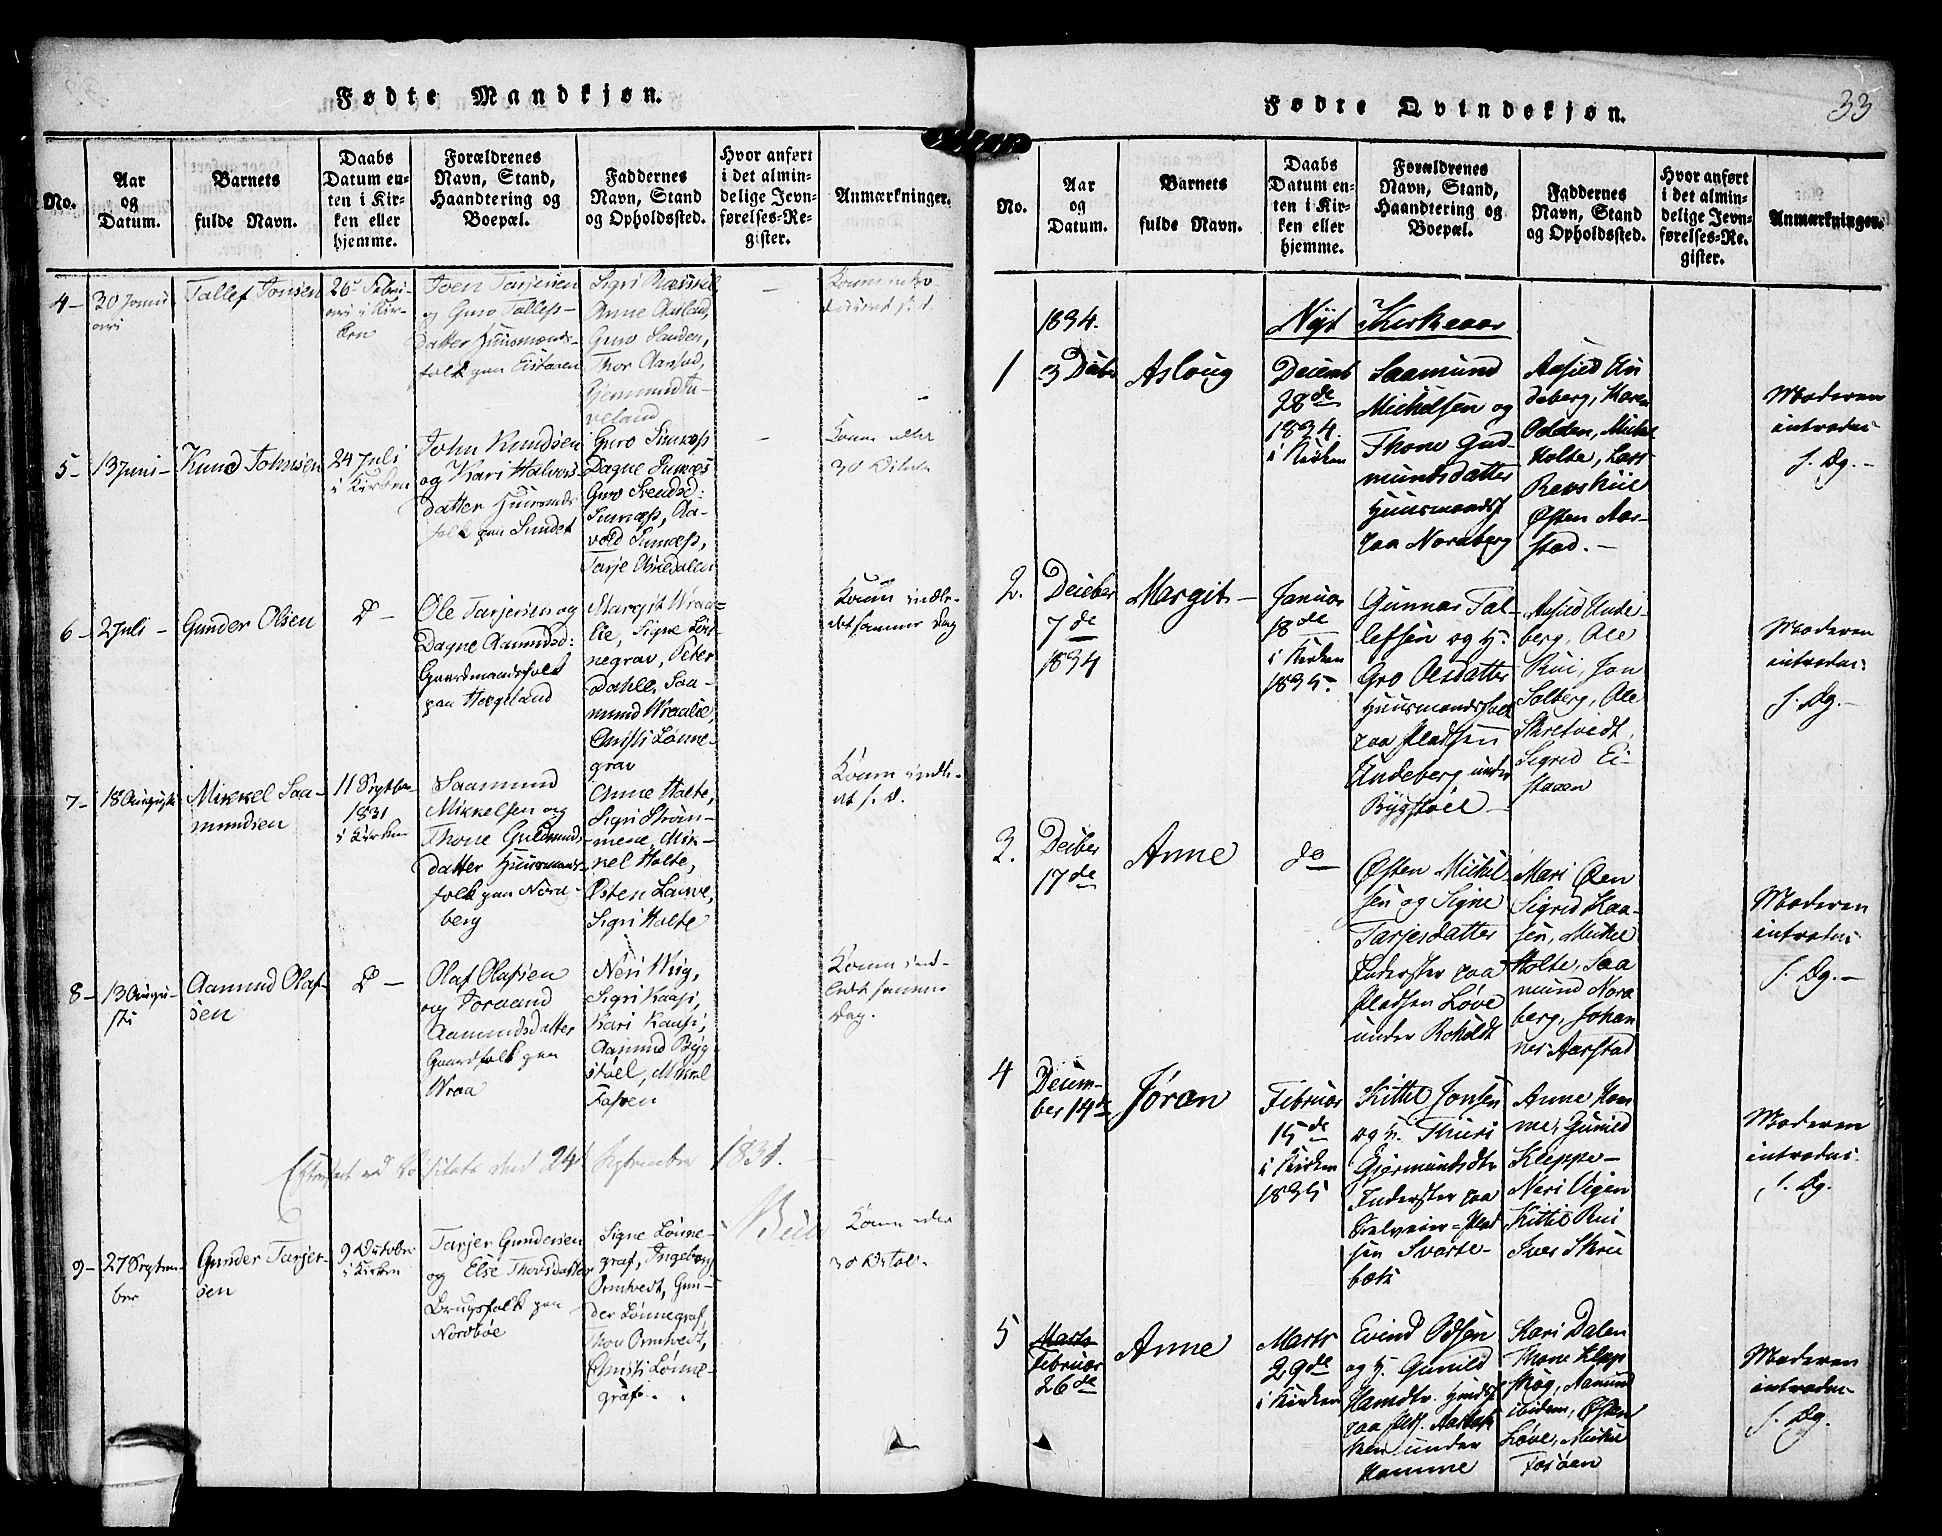 Fødte Mandkjøn.
No.
Aar
og
Datum.
Barnets
fulde Navn.
Daabs
Datum en-
ten i Kir-
ken eller
hjemme.
Forældrenes
Navn, Stand,
Haandtering og
Boepæl.
Faddernes
Navn, Stand
og Opholdssted.
Hvor anført
i det almin-
delige Jevn-
førelses-Re-
gister.
Anmærkninger.
4-
30 Janu-
ari
Tallef Jonsen
26 Febru-
ari i Kir-
ken
Joen Tarjesen
og Guro Tallefs-
datter Huusmands-
folk paa Eistaaen
Anne Aasland,
Guro Sanden,
Thor Aarstad,
Gjermund Tu-
veland
5-
13 Juni-
Knud Johnsen
24 Juli
i Kirken
John Knudsen
og Kari Halvors-
datter Huusmands-
folk paa Sundet
6-
2 Juli-
Gunder Olsen
D-
Ole Tarjesen og
Dagne Aamundsd:
Gaardmandsfolk
paa Haegeland
Margit Wraa-
lie, Signe Løn-
negrav, Peter
Dahle, Saa-
mund Wraalie,
Christi Lønne-
grav
Kom indle-
det samme Dag
7-
18 Augusti
Mikkel Saa-
mundsen
11 Septbr
1831
i Kirken
Saamund
Mikkelsen og
Thone Guldmunds-
datter Huusmands-
folk paa Nord-
berg
Anne Holte,
Sigri Strøm-
mene, Mik-
kel Holte,
Østen Løuve,
Sigri Holte
Kom indle-
det s. D.
8-
13 Augu-
sti
Aamund Olaf-
sen
D-
Olaf Olafsen
og Torvand
Aamundsdatter
Gaardfolk paa
Wraa
Neri Wiig,
Sigri Kaasi,
Kari Kaasi,
Aamund Byg-
støel, Mikkel
Fosøen
Kom ind-
ledt samme
Dag.
Efterseet ved Visitats den 24 September 1831.
9-
27 Septem-
ber
Gunder Tarjer-
sen
9 Octobr
i Kirken
Tarjer Gundersen
og Else Thorsdatter
Brugsfolk paa
Nordbøe
Signe Lønne-
graf, Ingeborg
Omtvedt, Gun-
der Lønnegraf,
Thor Omtvedt,
Christi Lønne-
graf.
Fødte Qvindekjøn.
33
No.
Aar
og
Datum.
Barnets
fulde Navn.
Daabs
Datum en-
ten i Kir-
ken eller
hjemme.
Forældrenes
Navn, Stand,
Haandtering og
Boepæl.
Faddernes
Navn, Stand
og Opholdssted.
Hvor anført
i det almin-
delige Jevn-
førelses-Re-
gister.
Anmærkninger.
1834.
Nyt Kirkeaar
1
3 Debr
Asloug
Decemb
28de
1834.
i Kirken
Saamund
Michelsen og
Thone Gud-
mundsdatter
Huusmandsf
paa Noraberg
Aasild Un
deberg, Karen
Odden, Mickel
Holte, Lars
Ravskiil
Østen Aar-
stad. -
Moderen
introdus
s. Dg. -
2.
Deceber
7de
1834
Margit-
Januar
18de
i Kirken
1835.
Gunnar Tal-
lefsen og H.
Gro Olsdatter
Huusmandsfolk
paa Pladsen
Undeberg under
Bygstøel -
Aasild Unde
berg, Ole
Rui, Jon
Solberg, Ole
Skretvedt,
Sigrid Ei-
staaen
Moderen
introdus.
s. Dg. -
3.
Deceber
17de
Anne
do
Østen Mickel-
sen og Signe
Tarjesdatter
Inderster paa
Pladsen Løve
under Roholdt
Mari Øen
Sigrid Kaa-
sen, Mickel
Holte, Saa
mund Nora
berg, Johan
nes Aarstad
Moderen
introdus.
s. Dg. -
4
Decem-
ber 14de
Jøran
Februar
15de
i Kirken
1835
Kittil Jonsen
og H. Thuri
Gjermundsdtr
Inderster paa
Elvein Plad
sen Svarte-
bæk
Anne Ham
me, Gunild
Kleppe-
Neri Vigen
Kittil Rui
Iver Skrei
Moderen
introdus.
s. Dg.
5
Marts
Februar
26de
Anne
Marts
29de
i Kirken
Evind Odsen
og H. Gunild
paa Plads.
ken under
Hamme
Kari Dalen
Thone Klepp
skog, Aamund
ibidem, Østen
Løve, Mickel
Fosøen
Moderen
introdus-
s. Dg.